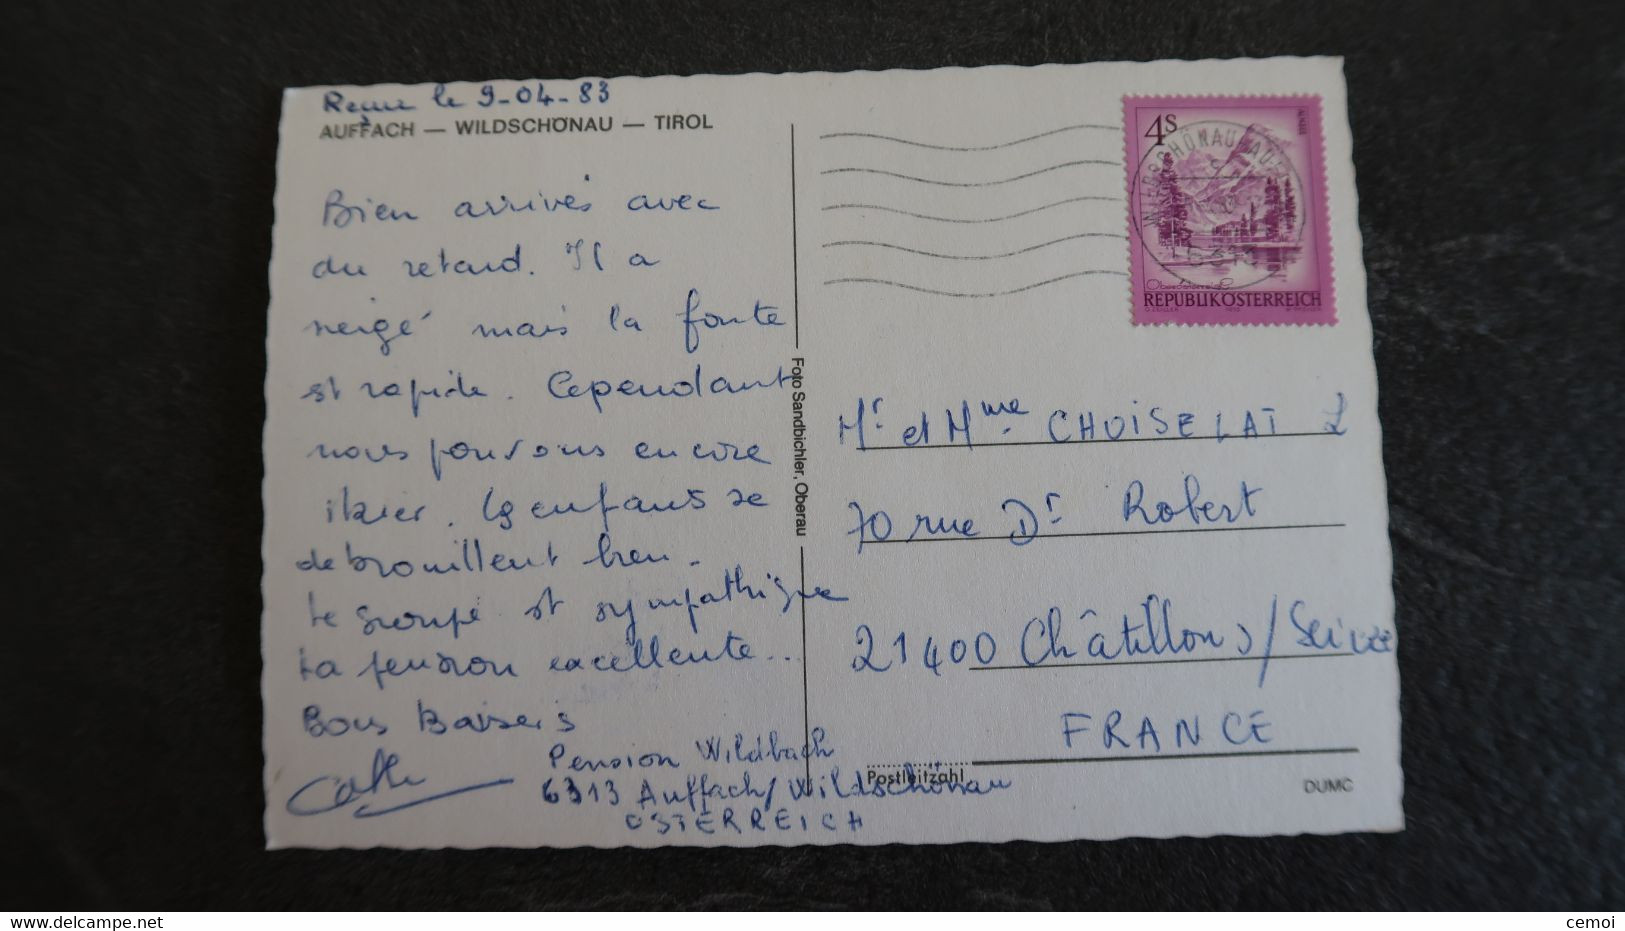 Reçue le 9-04-83
AUFFACH — WILDSCHÖNAU — TIROL
Bien arrivés avec
du retard. Il a
neigé mais la fonte
est rapide. Cependant
nous pouvons encore
skier. Les enfants se
debrouillent bien.
Le groupe est sympathique
La pension excellente...
Bons Baisers
Cathy
Pension Wildbach
6313 Auffach/Wildschönau
OSTERREICH
Foto Sandbichler, Oberau
4S
ALMSEE
Oberösterreich
REPUBLIK ÖSTERREICH
Mr et Mme CHOISELAT L
70 rue Dr Robert
21400 Châtillon s/Seine
FRANCE
Postleitzahl
DUMC
delcampe.net
cemoi